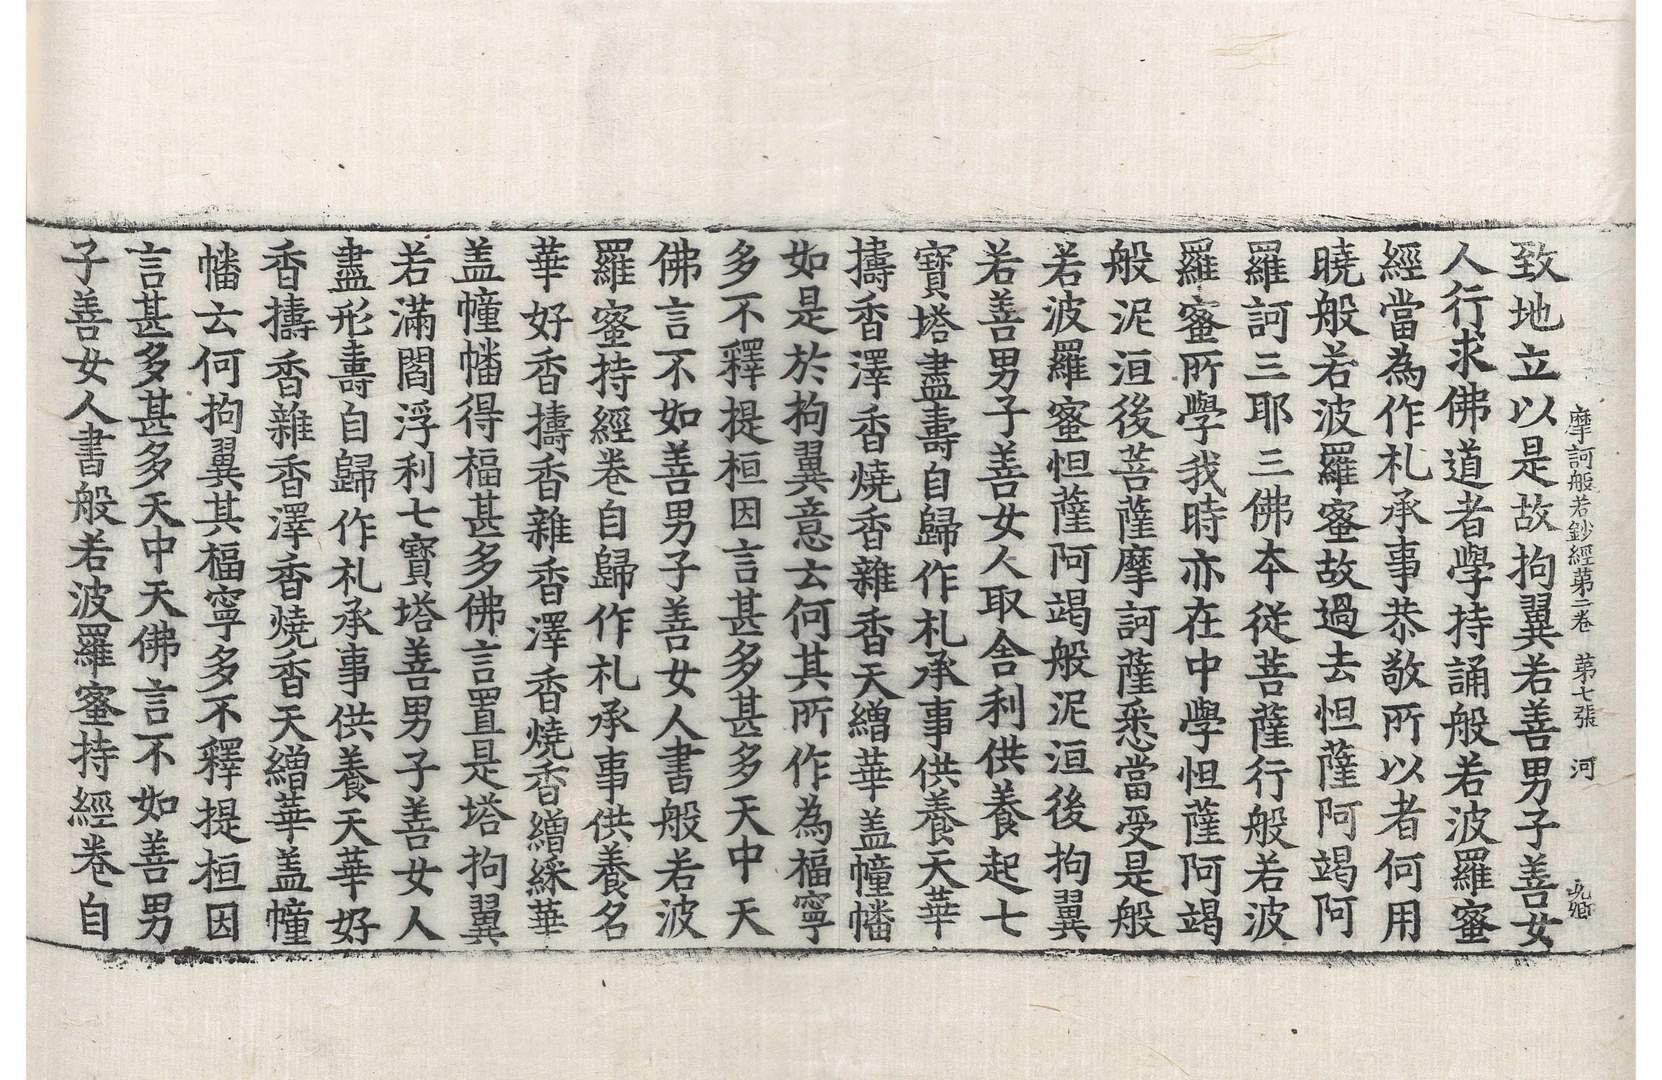 摩訶般若鈔經第二卷 第七張 河
致地立以是故拘翼若善男子善女
人行求佛道者學持誦般若波羅蜜
經當為作礼承事恭敬所以者何用
曉般若波羅蜜故過去怛薩阿竭阿
羅訶三耶三佛本從菩薩行般若波
羅蜜所學我時亦在中學怛薩阿竭
般泥洹後菩薩摩訶薩悉當受是般
若波羅蜜怛薩阿竭般泥洹後拘翼
若善男子善女人取舍利供養起七
寶塔盡壽自歸作礼承事供養天華
擣香澤香燒香雜香天繒華盖幢幡
如是於拘翼意云何其所作為福寧
多不釋提桓因言甚多甚多天中天
佛言不如善男子善女人書般若波
羅蜜持經卷自歸作礼承事供養名
華好香擣香雜香澤香燒香繒綵華
盖幢幡得福甚多佛言置是塔拘翼
若滿閻浮利七寶塔善男子善女人
盡形壽自歸作礼承事供養天華好
香擣香雜香澤香燒香天繒華盖幢
幡云何拘翼其福寧多不釋提桓因
言甚多甚多天中天佛言不如善男
子善女人書般若波羅蜜持經卷自